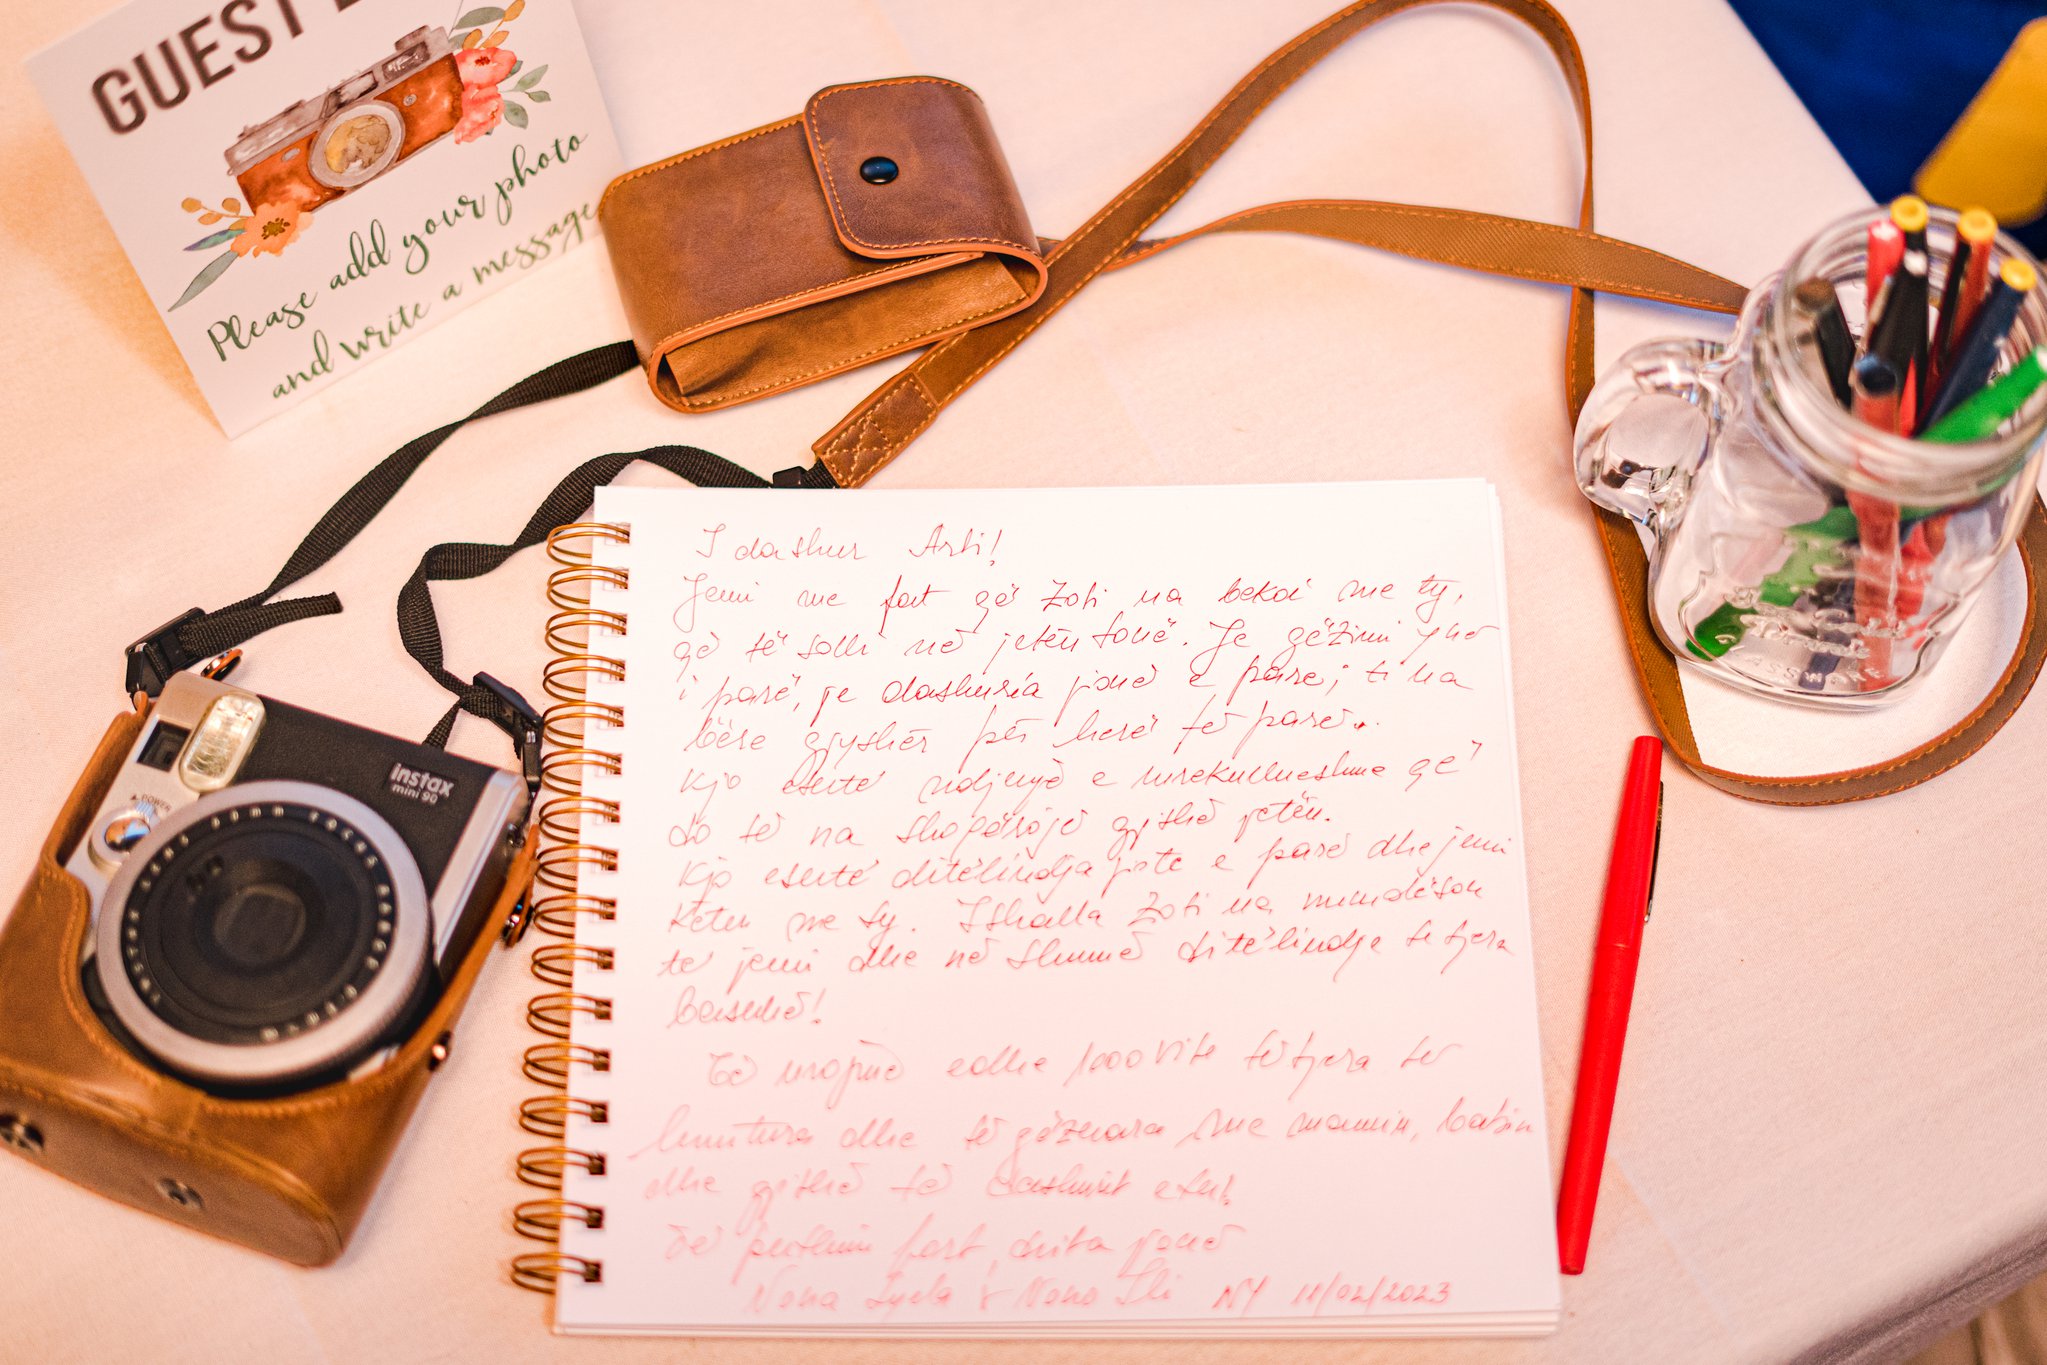 GUEST
Please add your photo
and write a message
instax
mini 90
POWER
I dashur Arti!
Jemi me fat që Zoti na bekoi me ty,
që të solli në jetën tonë. Je gëzimi ynë
i parë, je dashuria jonë e parë; ti na
bëre gjyshër për herë të parë..
Kjo është ndjenjë e mrekullueshme që
do të na shoqërojë gjithë jetën.
Kjo është ditëlindja jote e parë dhe jemi
këtu me ty. Ishalla Zoti na mundëson
të jemi dhe në shumë ditëlindje të tjera
bashkë!
Të urojmë edhe 100 vite të tjera të
lumtura dhe të gëzuara me mamin, babin
dhe gjithë të dashurit e tu!
Të puthim fort, drita jonë
Nona & Nono Ili NY 11/02/2023